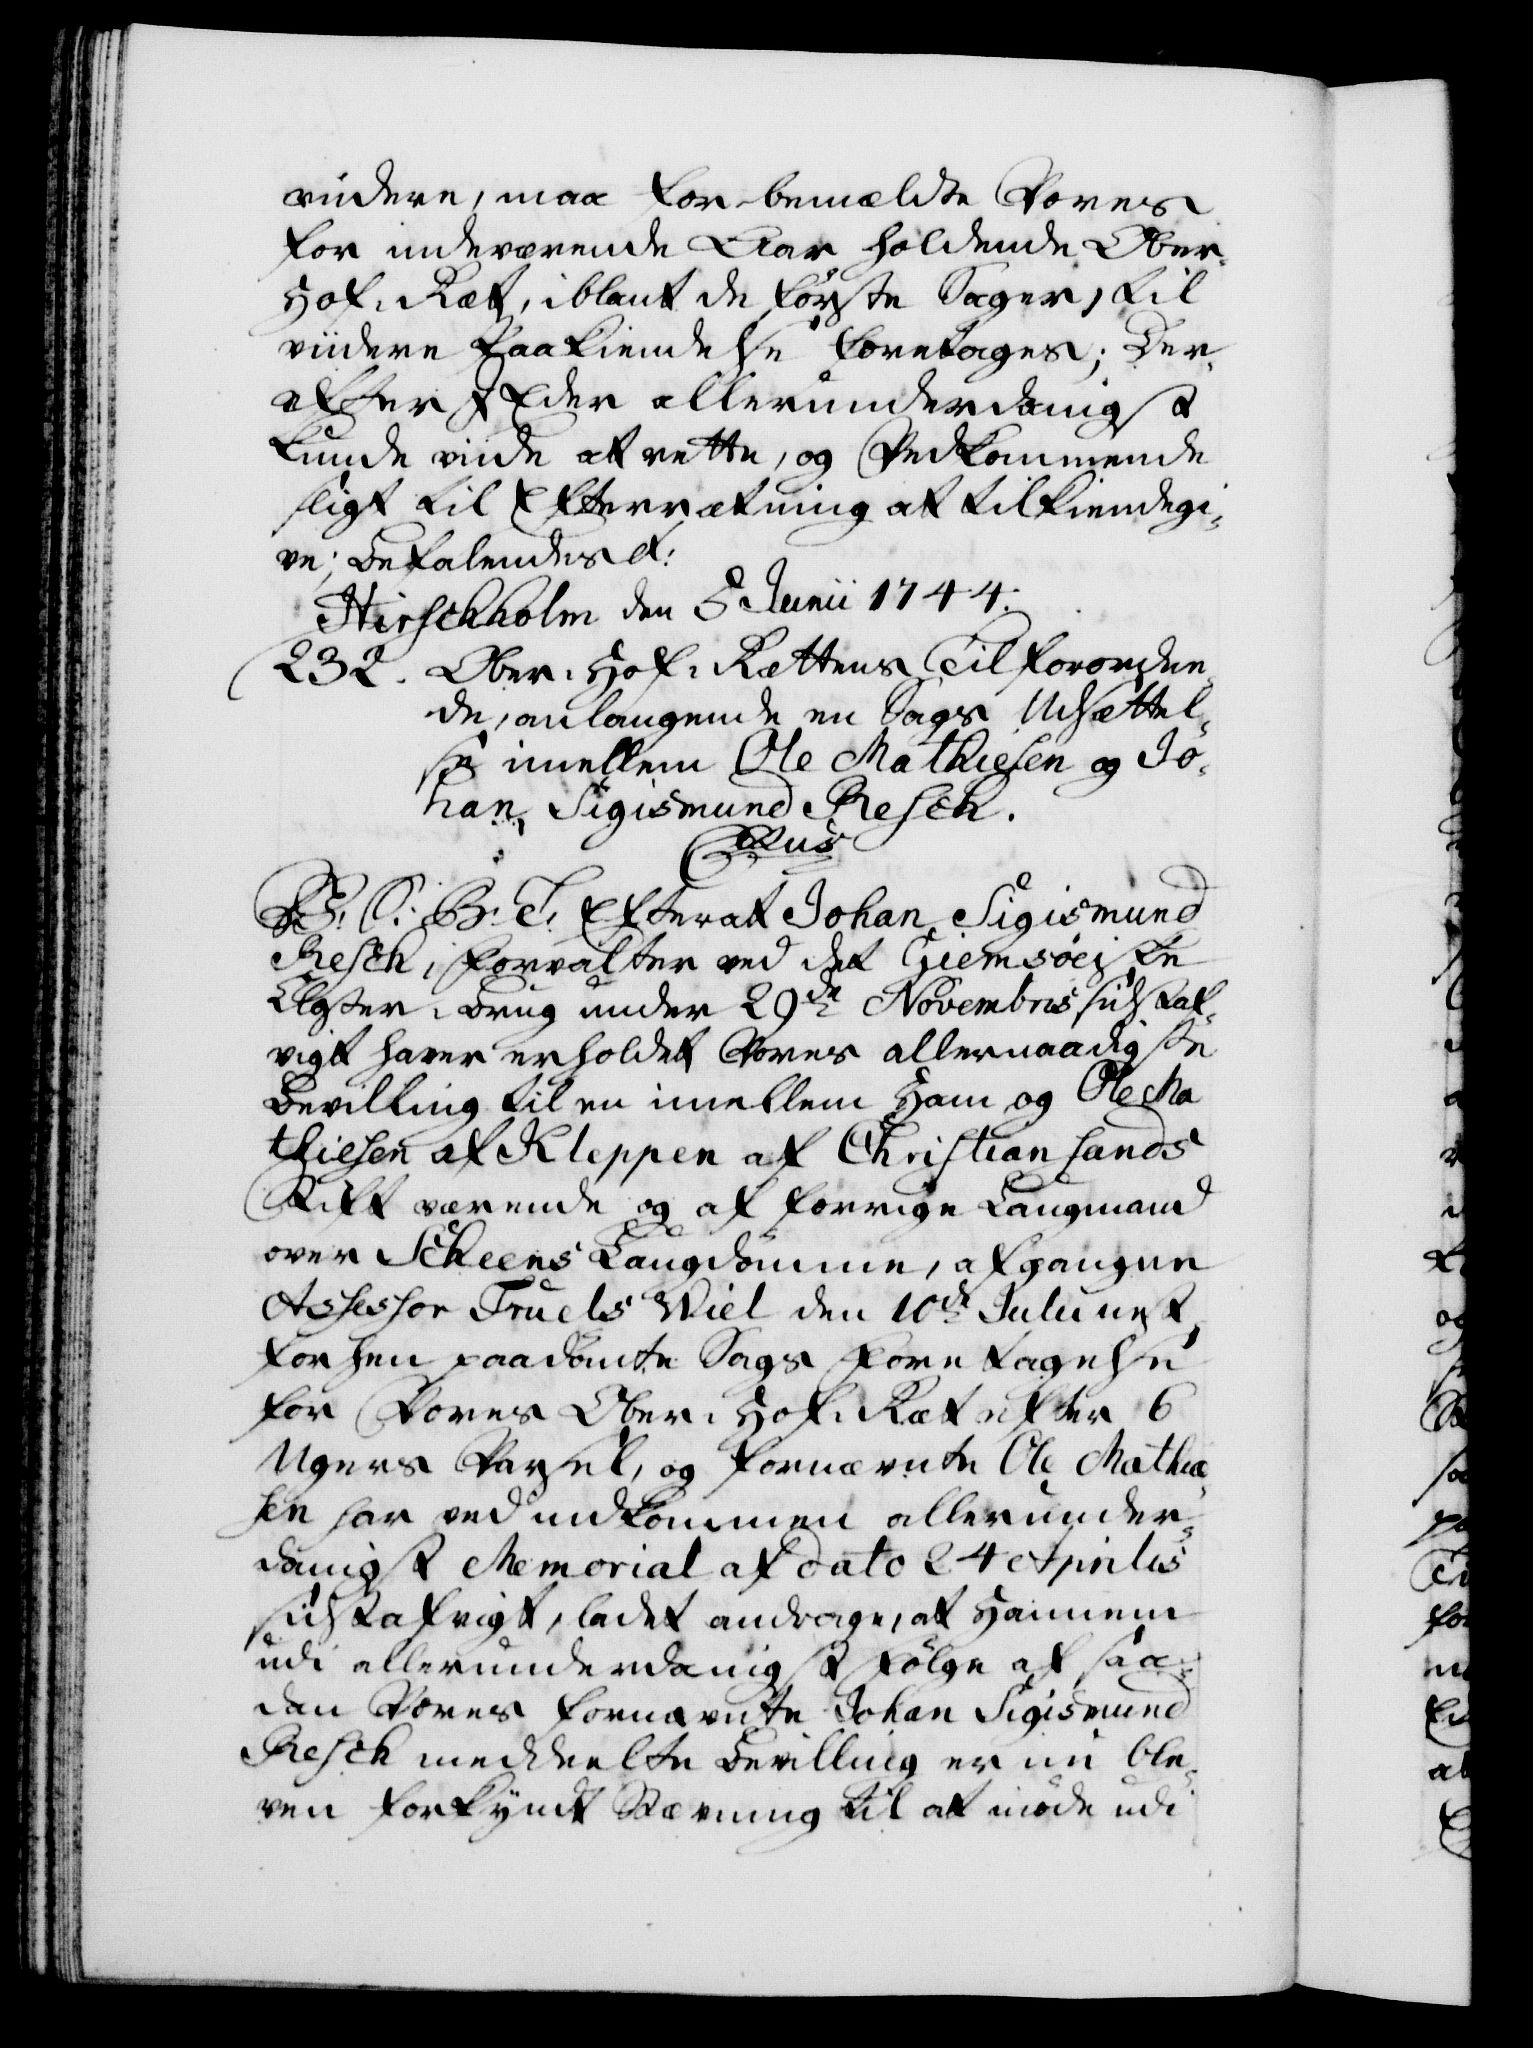 viidere, maa for bemældte Vores
for indeværende Aar holdende Ober-
Hof-Ræt, iblant de første Sager, til
viidere Paakiendelse foretages; Der-
efter I Eder allerunderdanigst
kunde viide at rette, og Vedkommende
sligt til Efterrætning at tilkiendegi-
ve; Befalendes et:
Hirschholm den 5 Junii 1744.
232. Ober-Hof-Rættens Tilforordne-
de, anlangende en Sags Udsættel-
se imellem Ole Mathiesen og Jo-
han Sigismund Resch.
C. S. B: T: Efterat Johan Sigismund
Resch, Forvalter ved det Giemsøeiske
Closter-Brug under 29de Novembris sidstaf-
vigt haver erholdet Vores allernaadigste
Bevilling til en imellem Ham og Ole Ma
thiesen af Kleppen af Christiansands
Stift værende og af forrige Laugmand
over Scheens Laugdømme, afgangne
Assessor Truels Wiel den 10de Julii nest
forhen paadømte Sags Foretagelse
for Vores Ober-Hof-Ræt efter 6
Ugers Varsel, og fornævnte Ole Mathie-
sen har ved indkommen allerunder-
danigst Memorial af dato 24 Aprilis
sidstafvigt, ladet andrage, at Hannem
udi allerunderdanigst Følge af saa-
dan Vores fornævnte Johan Sigismund
Resch meddeelte Bevilling er nu ble-
ven forkyndt Stævning til at møde udi